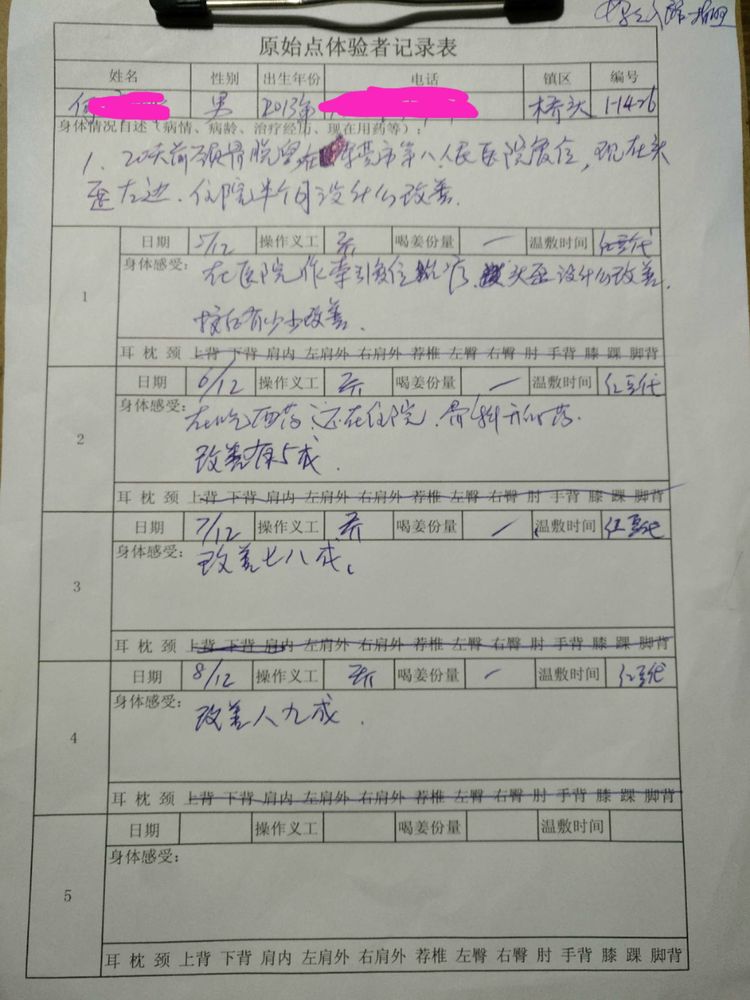 原始点体验者记录表
姓名 性别 出生年份 电话 镇区 编号
男 2013年 桥头 1-1426
身体情况自述（病情、病龄、治疗经历、现在用药等）：
1. 20天前颈骨脱臼在 市第八人民医院复位，现在头
歪左边.住院半个月没什么改善.
1
日期 5/12 操作义工 喝姜份量 一 温敷时间 红豆袋
身体感受：在医院作牵引复位治疗.头歪没什么改善.
按后有少少改善.
耳 枕 颈 上背 下背 肩内 左肩外 右肩外 荐椎 左臀 右臀 肘 手背 膝 踝 脚背
2
日期 6/12 操作义工 喝姜份量 一 温敷时间 红豆袋
身体感受：在吃西药.还在住院.骨科开的药.
改善有5成.
耳 枕 颈 上背 下背 肩内 左肩外 右肩外 荐椎 左臀 右臀 肘 手背 膝 踝 脚背
3
日期 7/12 操作义工 喝姜份量 一 温敷时间 红豆袋
身体感受：改善七八成.
耳 枕 颈 上背 下背 肩内 左肩外 右肩外 荐椎 左臀 右臀 肘 手背 膝 踝 脚背
4
日期 8/12 操作义工 喝姜份量 一 温敷时间 红豆袋
身体感受：改善八九成.
耳 枕 颈 上背 下背 肩内 左肩外 右肩外 荐椎 左臀 右臀 肘 手背 膝 踝 脚背
5
日期 操作义工 喝姜份量 温敷时间
身体感受：
耳 枕 颈 上背 下背 肩内 左肩外 右肩外 荐椎 左臀 右臀 肘 手背 膝 踝 脚背